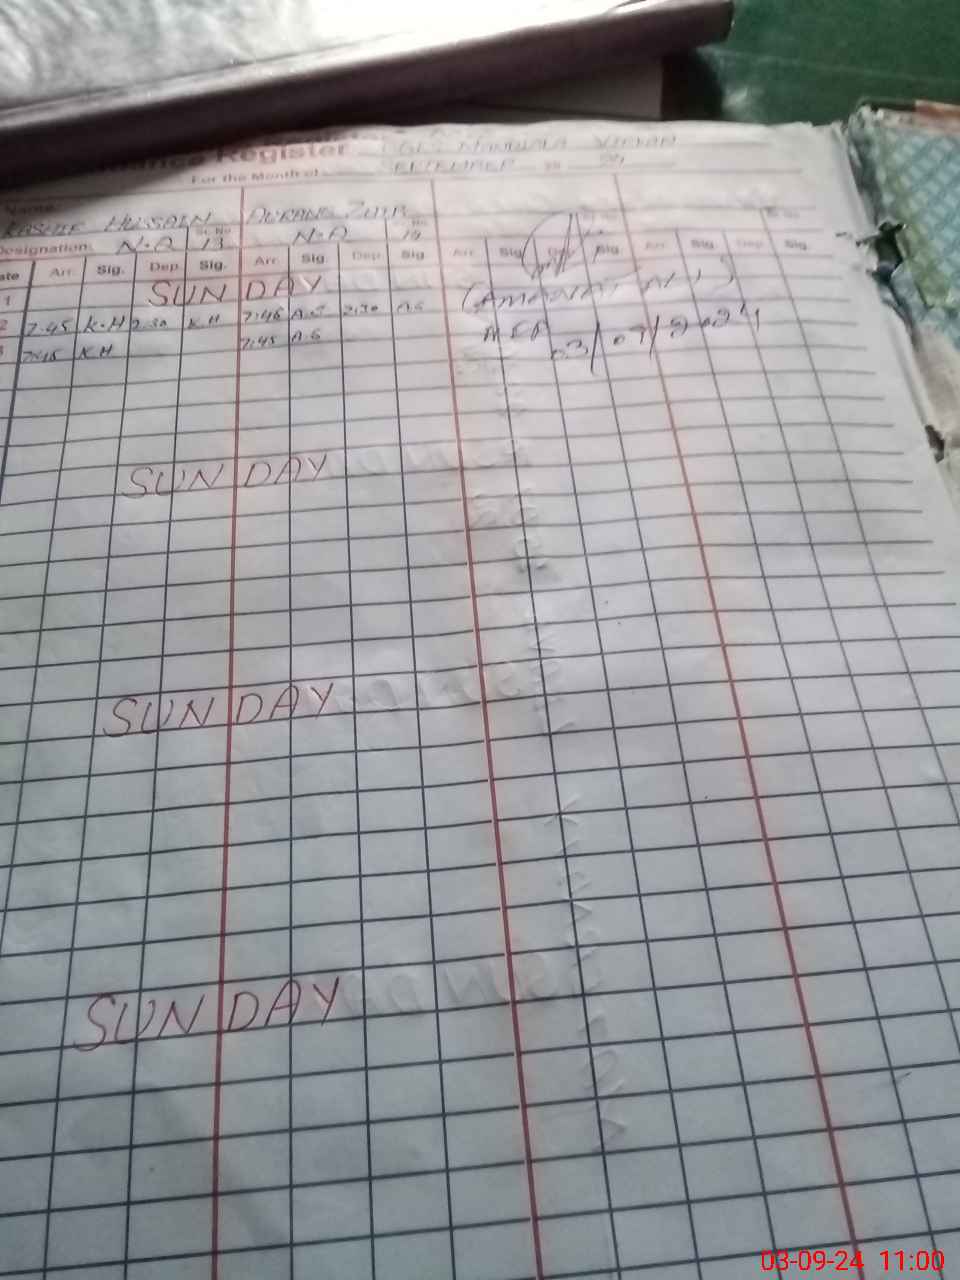 Register
For the Month of SEPTEMBER 20 24
Name:
KASHIF HUSSAIN AURANG ZAIB
Designation: N.Q Sr. No 13 N.Q 14
Date Arr. Sig. Dep. Sig. Arr. Sig Dep. Sig Arr. Sig Dep. Sig. Arr. Sig. Dep. Sig.
1 SUNDAY
2 7.45 K.H 2.30 K.H 7:45 A.S 2:30 A.S
3 7:45 K.H 7:45 A.S
(AMANAT ALI)
03/09/2024
SUNDAY
SUNDAY
SUNDAY
03-09-24 11:00